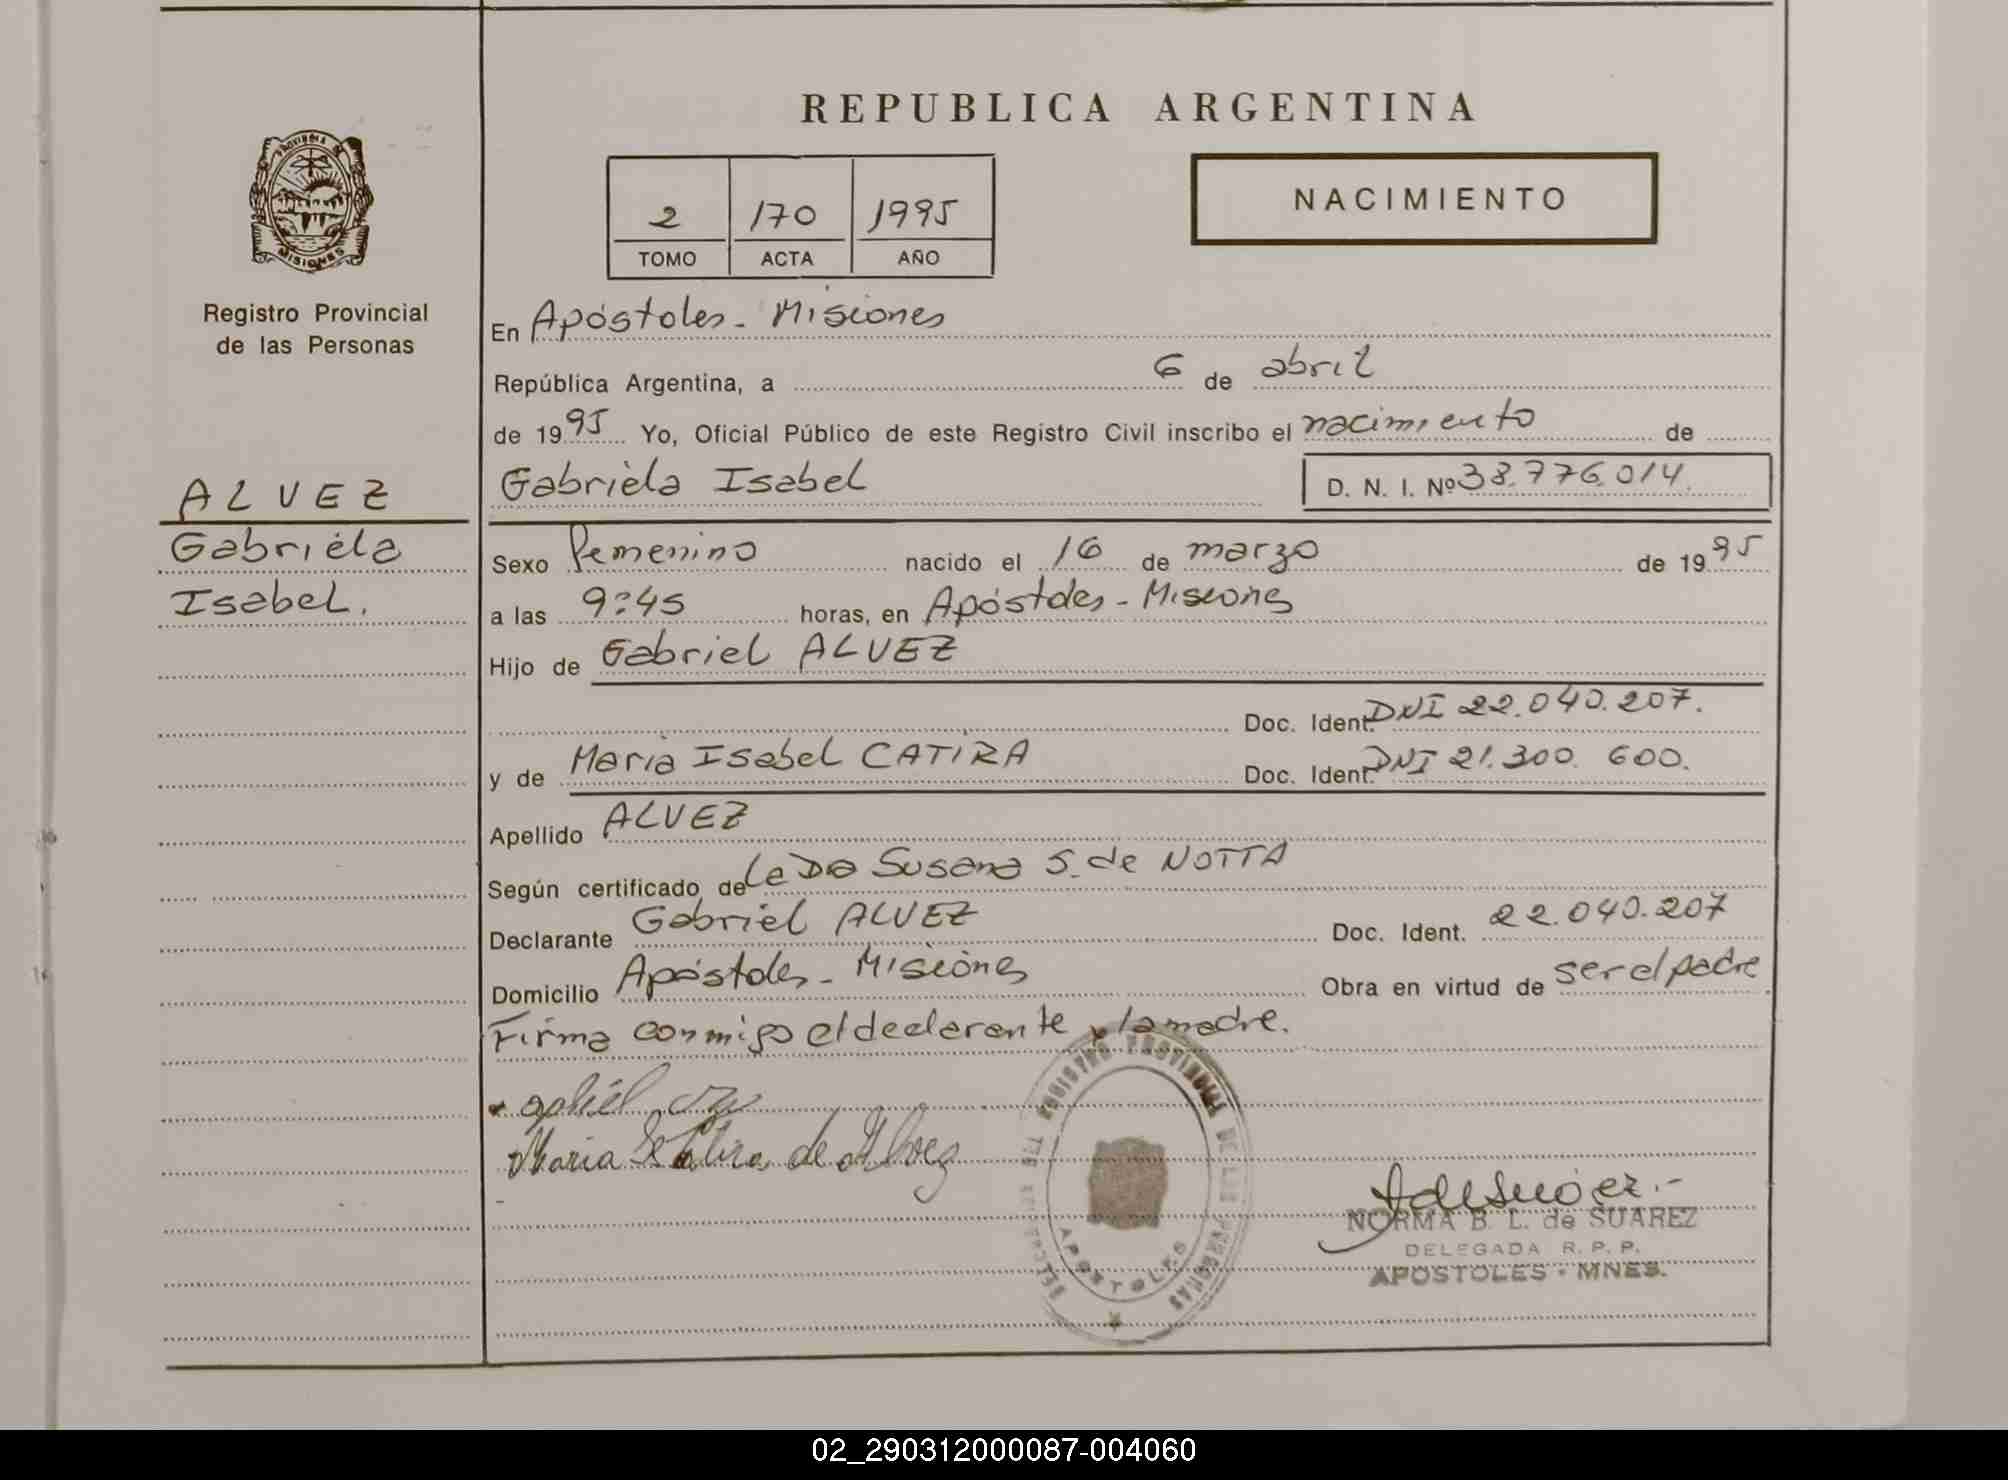 REPUBLICA ARGENTINA
PROVINCIA DE
MISIONES
Registro Provincial
de las Personas
2 170 1995
TOMO ACTA AÑO
NACIMIENTO
En Apóstoles - Misiones
República Argentina, a 6 de abril
de 1995 Yo, Oficial Público de este Registro Civil inscribo el nacimiento de
Gabriela Isabel D. N. I. Nº 38.776.014.
ALVEZ
Gabriela
Isabel.
Sexo Femenino nacido el 16 de marzo de 1995
a las 9:45 horas, en Apóstoles - Misiones
Hijo de Gabriel ALVEZ
Doc. Ident. DNI 22.040.207.
y de Maria Isabel CATIRA Doc. Ident. DNI 21.300.600.
Apellido ALVEZ
Según certificado de La Dra Susana S. de NOTTA
Declarante Gabriel ALVEZ Doc. Ident. 22.040.207
Domicilio Apóstoles - Misiones Obra en virtud de ser el padre
Firma conmigo el declarante y la madre.
Maria de Alvez
REGISTRO PROVINCIAL DE LAS PERSONAS
APOSTOLES
NORMA B. L. de SUAREZ
DELEGADA R. P. P.
APOSTOLES - MNES.
02_290312000087-004060